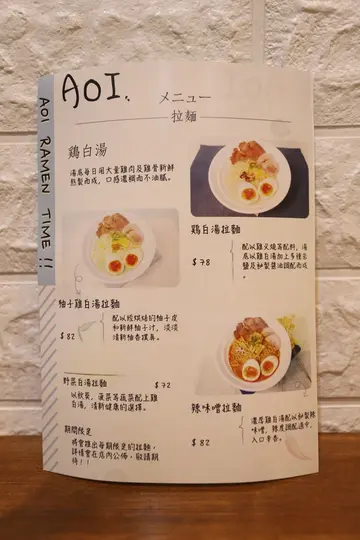 AOI
メニュー
拉麵
AOI RAMEN TIME !!
鶏白湯
湯底每日用大量雞肉及雞骨新鮮
熬製而成，口感濃稠而不油膩。
鶏白湯拉麵
$78
配以雞叉燒等配料，湯
底以雞白湯加上多種岩
鹽及秘製醬油調配而成
。
柚子雞白湯拉麵
$82
配以經烘焙的柚子皮
和新鮮柚子汁，淡淡
清新柚香撲鼻。
野菜白湯拉麵 $72
以秋葵，蓮菜等蔬菜配上雞
白湯，清新健康的選擇。
辣味噌拉麵
$82
濃厚雞白湯配以秘製辣
味噌，辣度調配適中，
入口辛香。
期間限定
將會推出每期限定的拉麵，
詳情會在店內公佈，敬請期
待！！